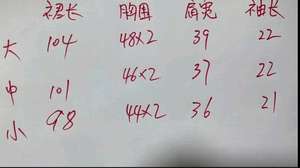 裙长 胸围 肩宽 袖长
大 104 48×2 39 22
中 101 46×2 37 22
小 98 44×2 36 21